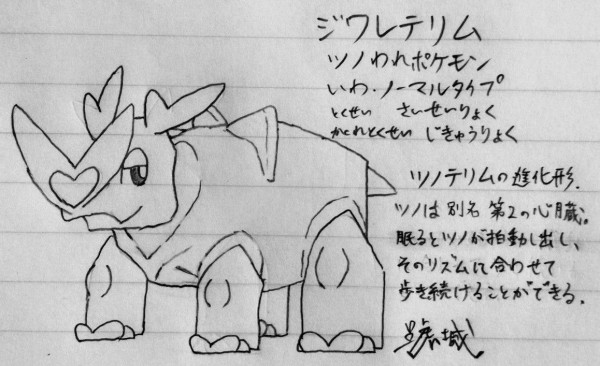 ジワレテリム
ツノわれポケモン
いわ・ノーマルタイプ
とくせい さいせいりょく
かくれとくせい じきゅうりょく
ツノテリムの進化形.
ツノは別名 第2の心臓。
眠るとツノが拍動し出し、
そのリズムに合わせて
歩き続けることができる.